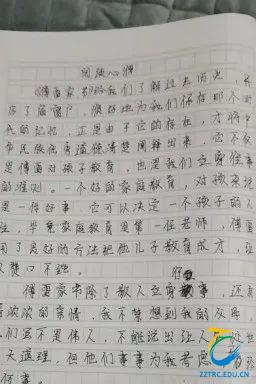 阅读心得
《傅雷家书》给我们了解过去历史,
很好地为我们保存那个时
代的记忆,正是由于它的存在,才将中
华民族优良道德清楚阐释出来,它不仅
是傅雷对孩子教育,也是我们立身处事
的准则。一个好的家庭教育,对孩子来说
是一件好事,它可以决定一个孩子的人
生,毕竟家庭教育是第一任老师,傅雷
用了良好的方法把他儿子教育成才,让
人赞口不绝。
傅雷家书除了教人立身处事,还有
浓浓的亲情,我不禁想到我的父母,
们虽不是伟人,不能说出让人
大道理,但他们事事为我考虑
何事
ZZTRC.EDU.CN